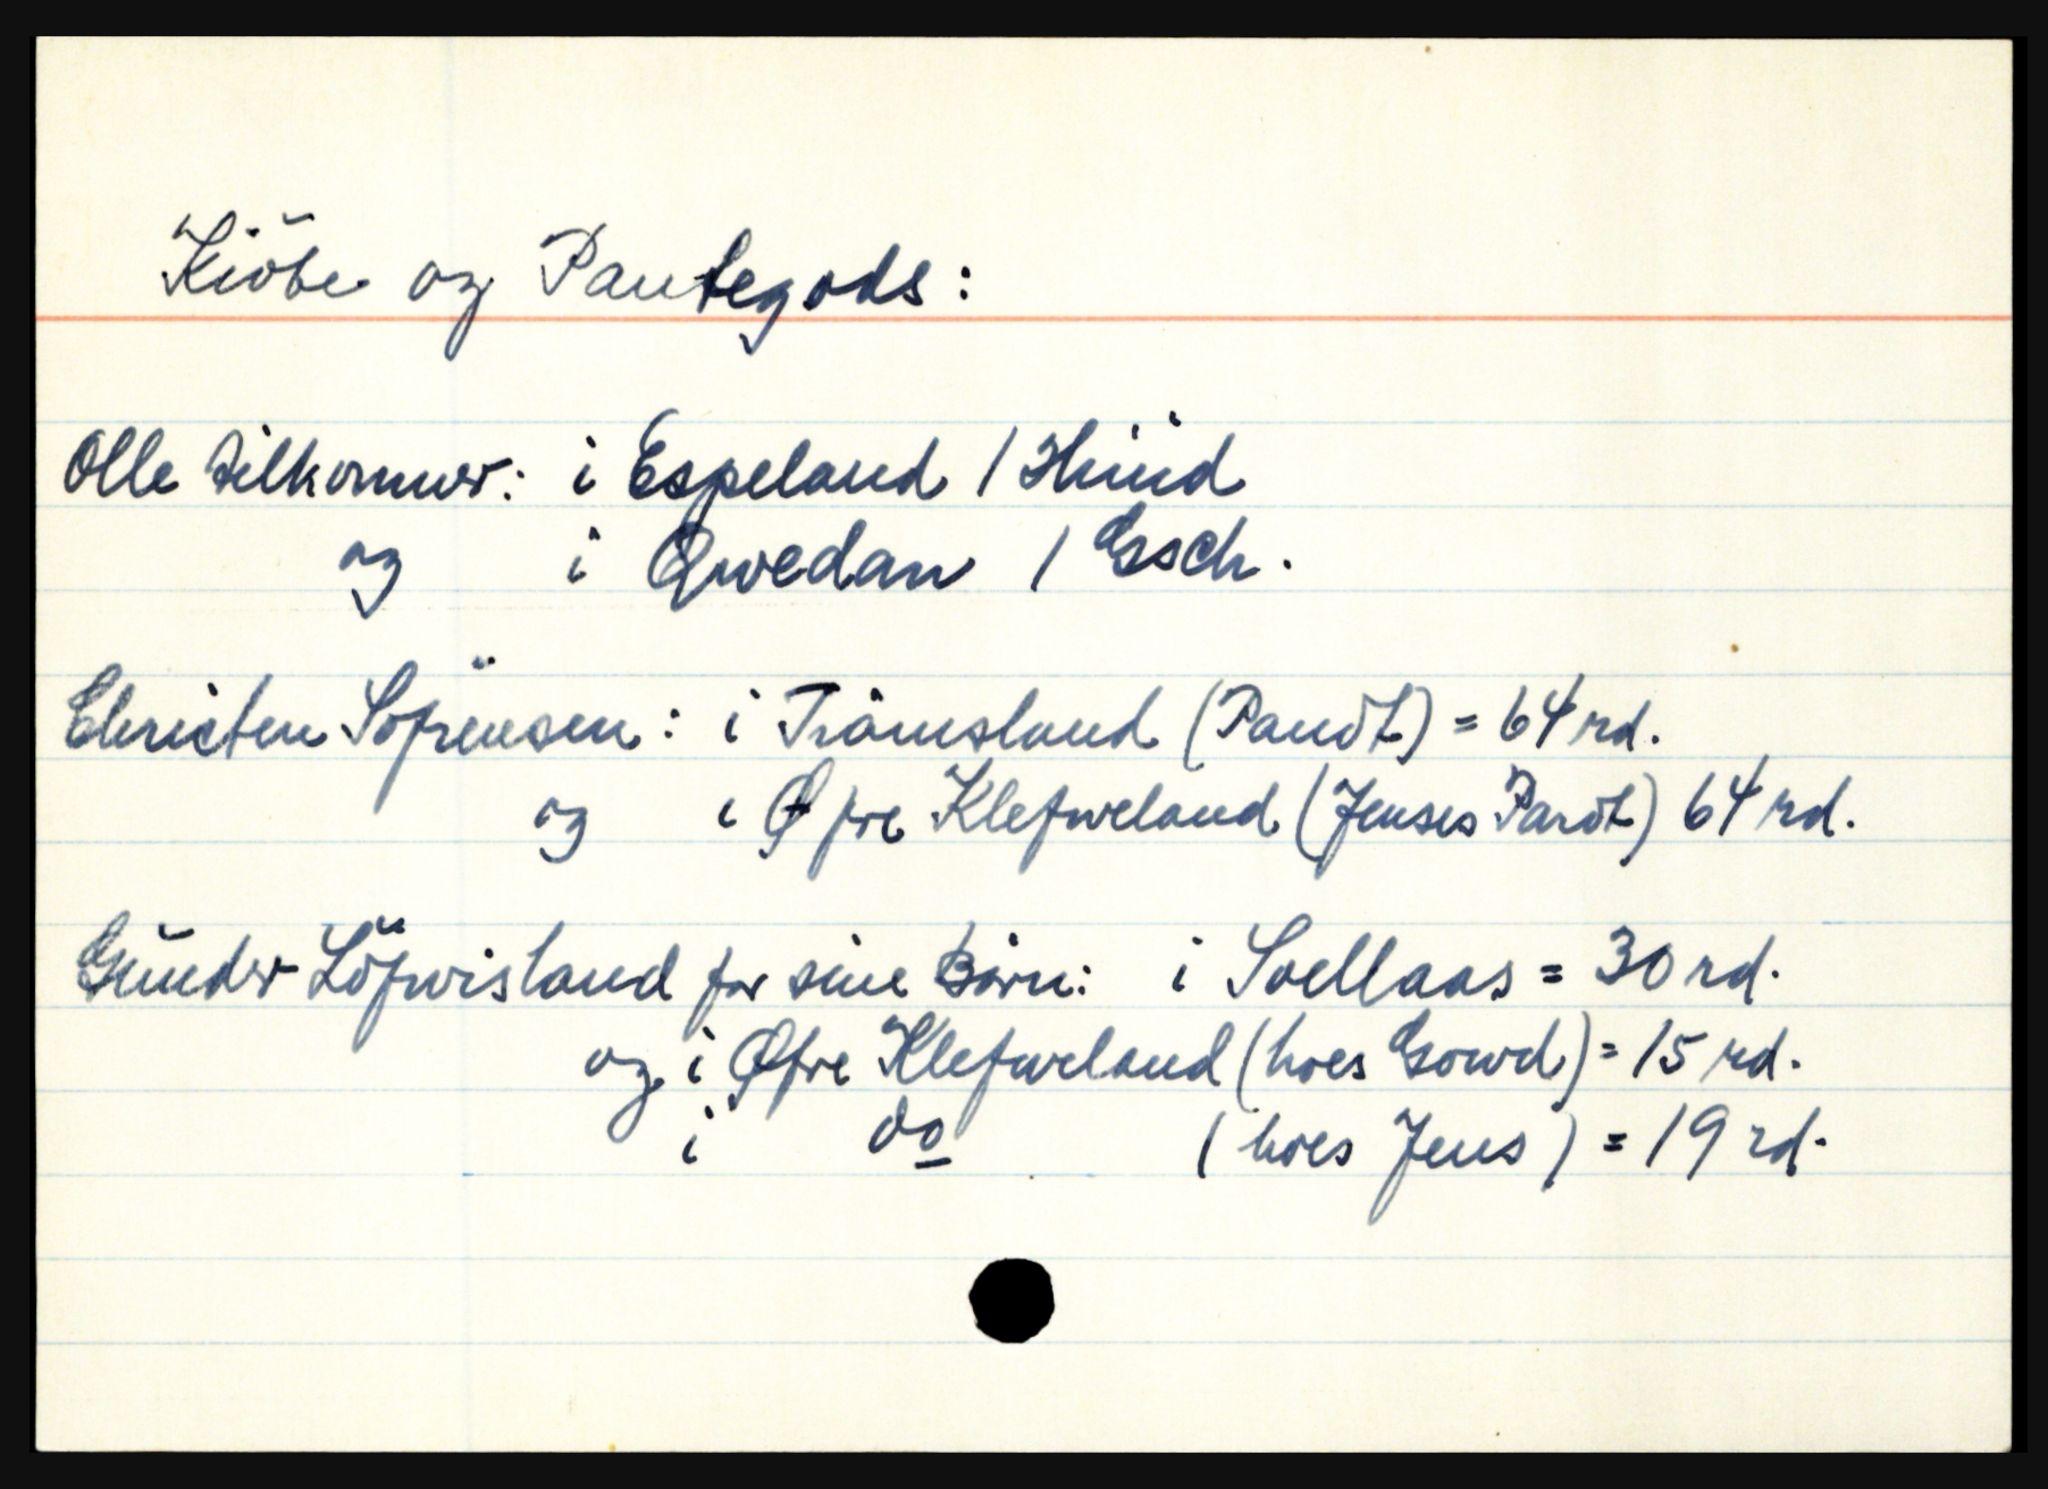 Kiöbe og Pantegods:
Olle tilkommer: i Espeland / Hüüd
og i Qwedan / Gsch.
Christen Söfrensen: i Tråmsland (Pandt) = 64 rd.
og i Øfre Klefweland (Jenses Pandt) 64 rd.
Günder Löfwisland for sine Börn: i Soellaas = 30 rd.
og i Øfre Klefweland (hoes Gowd) = 15 rd.
i do (hoes Jens) = 19 rd.